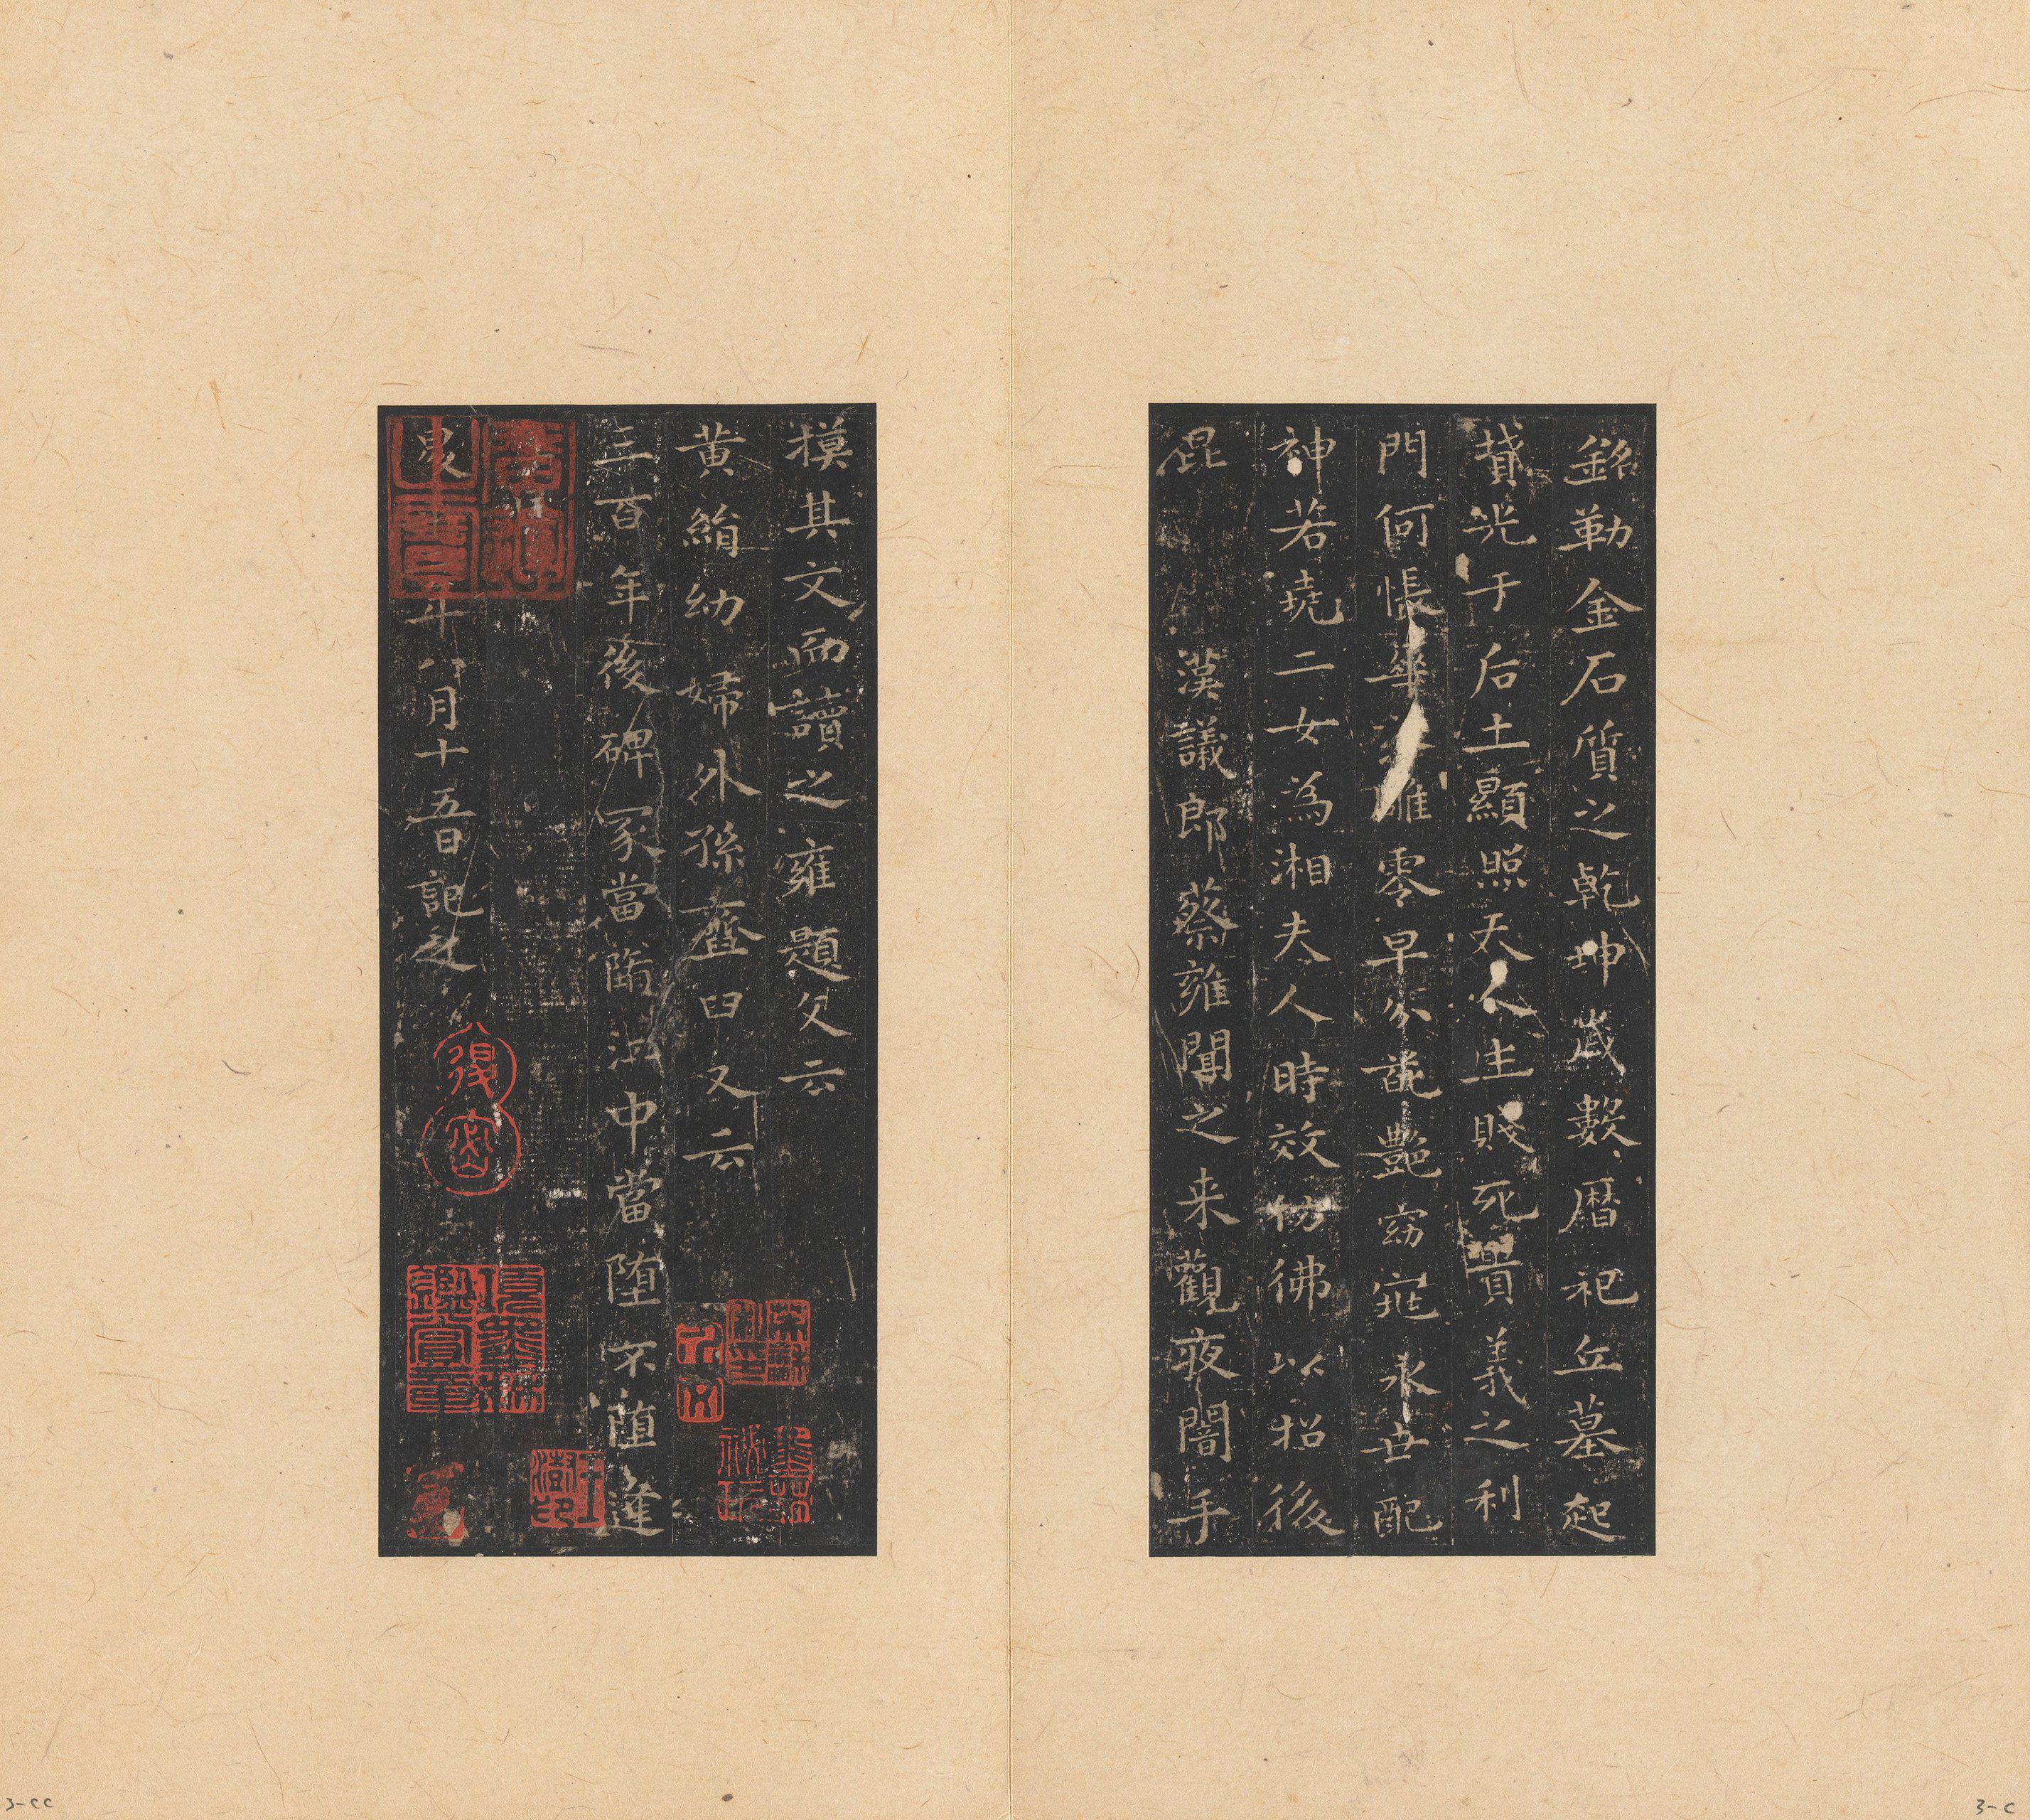 銘勒金石質之乾坤歲數曆祀丘墓起
墳光于后土顯照天人生賤死貴義之利
門何悵華落雕零早分葩艷窈窕永世配
神若堯二女為湘夫人時效仿彿以招後
昆 漢議郎蔡雍聞之来觀夜闇手
摸其文而讀之雍題父云
黄絹幼婦外孫齏臼又云
三百年後碑冢當墮江中當墮不墮逢
叟
年八月十五日記之
3-CC
3-C